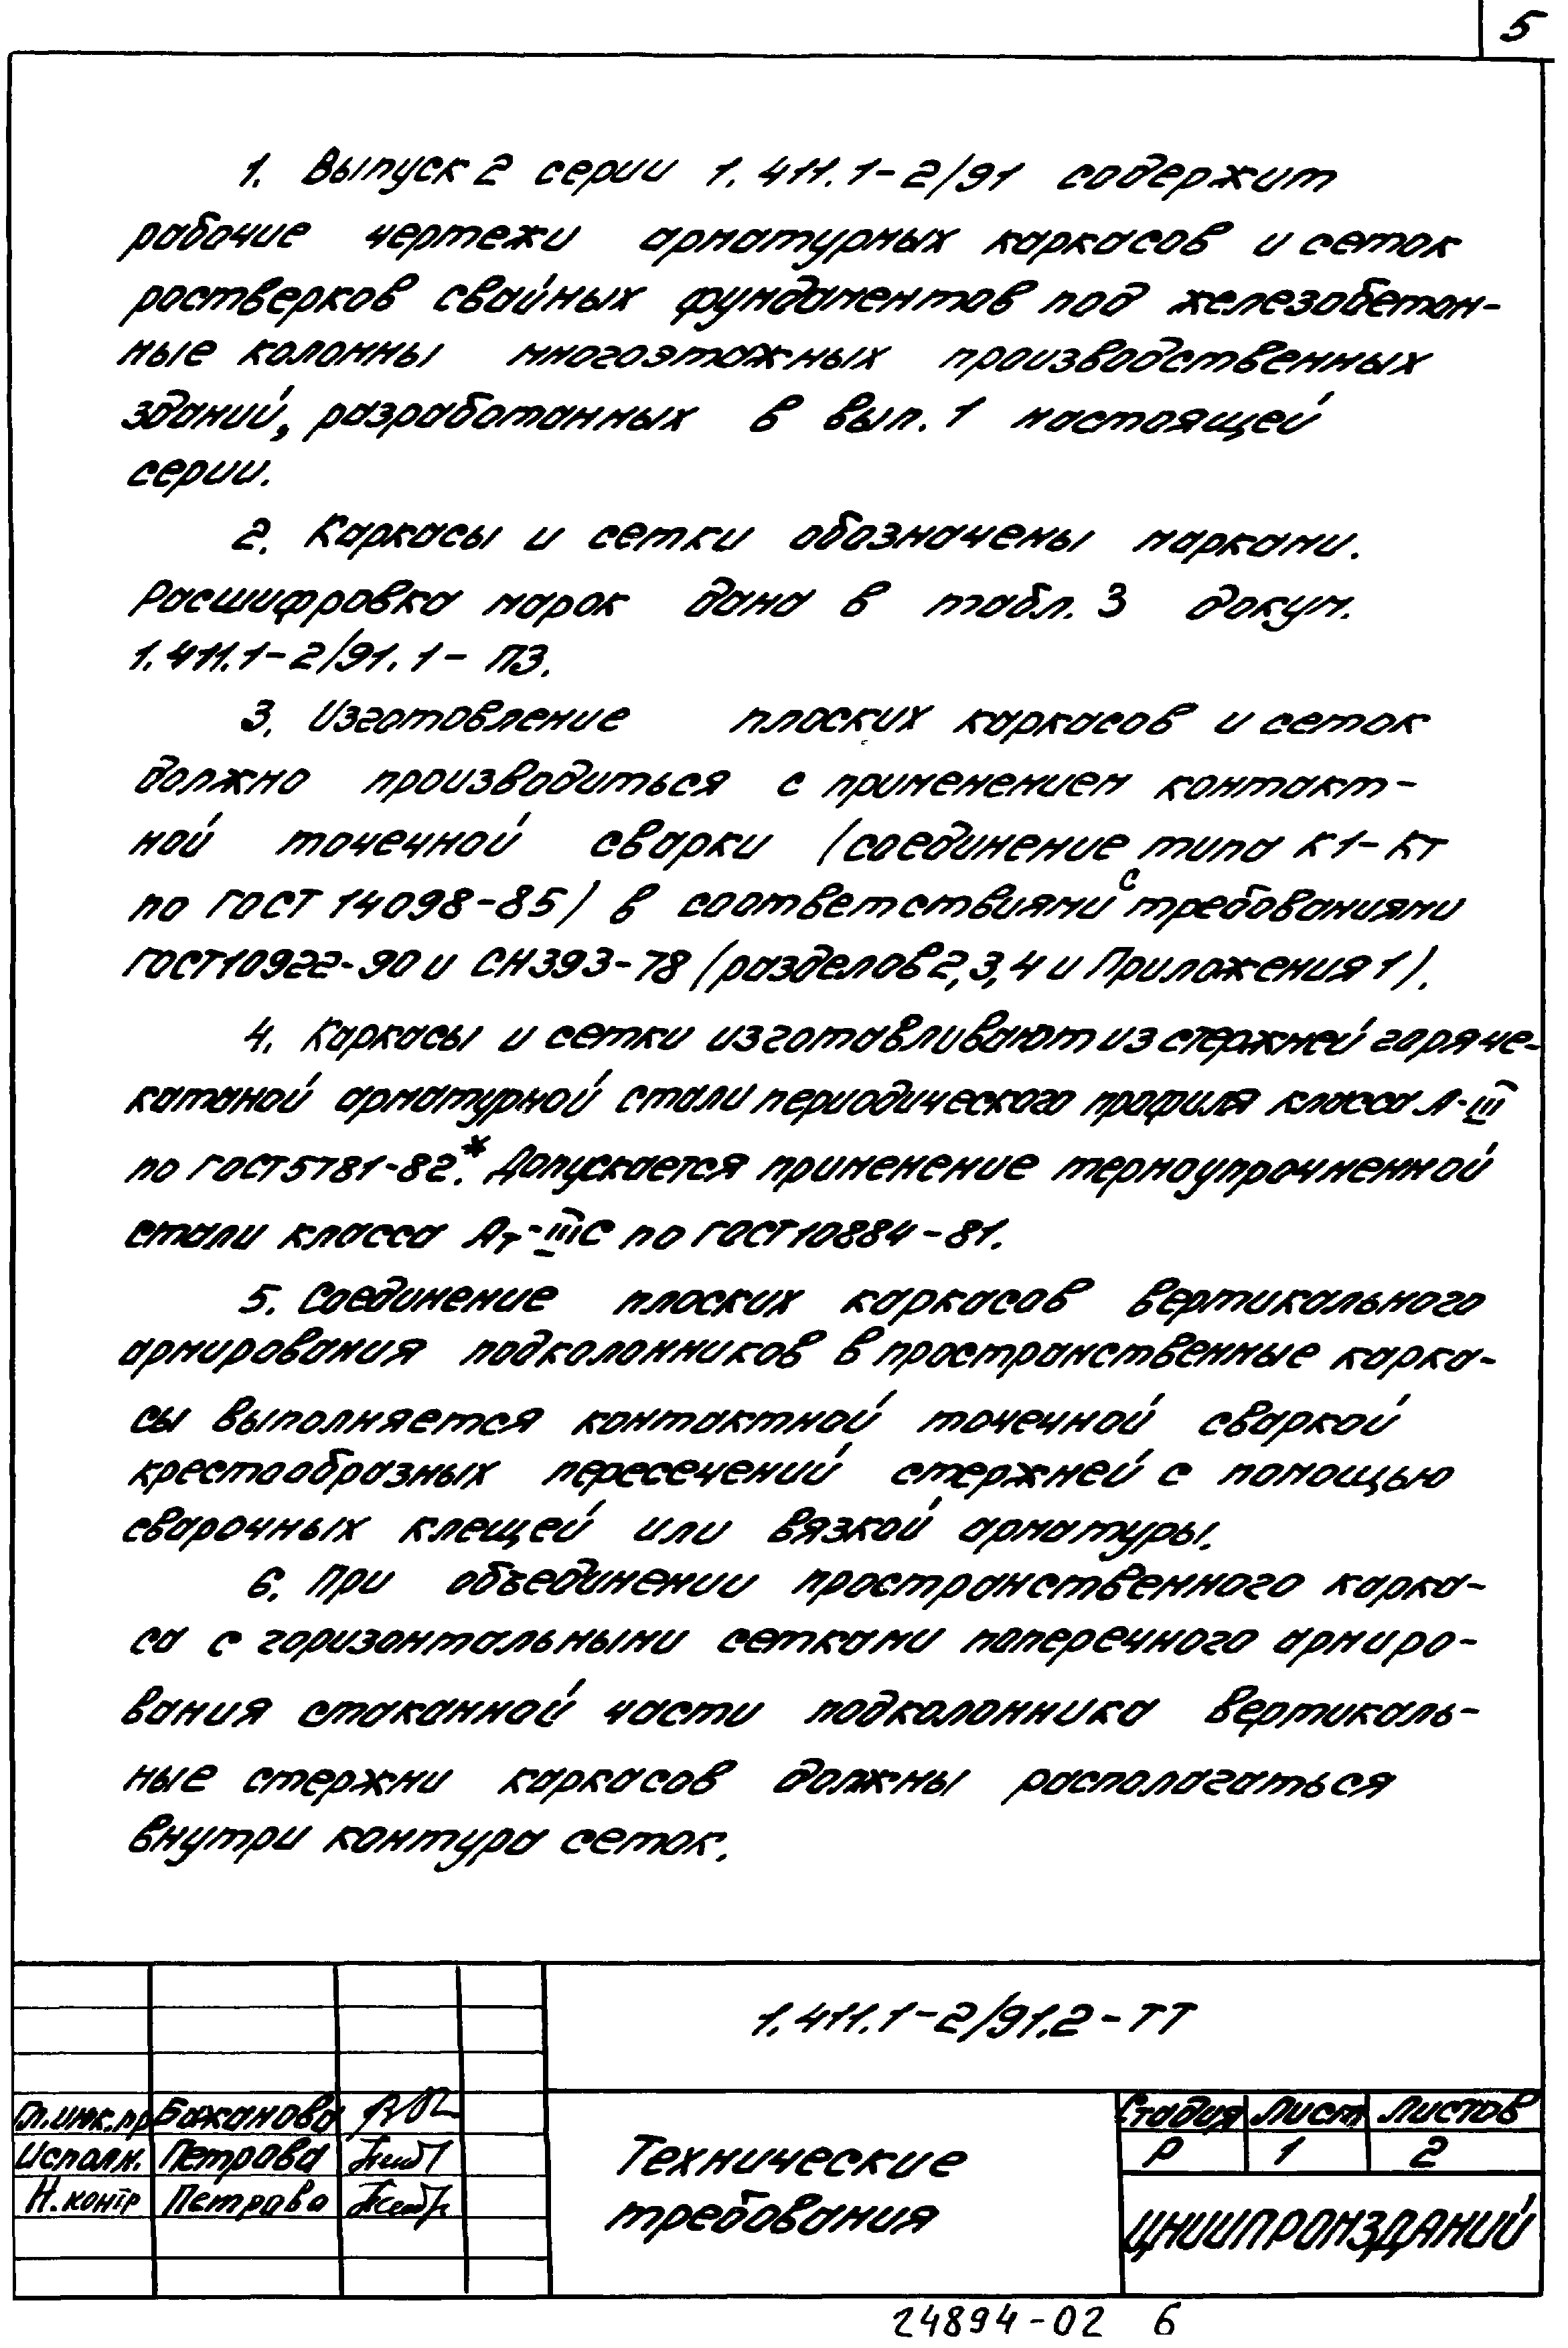 5
1. Выпуск 2 серии 1.411.1-2/91 содержит
рабочие чертежи арматурных каркасов и сеток
ростверков свайных фундаментов под железобетон-
ные колонны многоэтажных производственных
зданий, разработанных в вып. 1 настоящей
серии.
2. Каркасы и сетки обозначены марками.
Расшифровка марок дана в табл. 3 докум.
1.411.1-2/91.1-ПЗ.
3. Изготовление плоских каркасов и сеток
должно производиться с применением контакт-
ной точечной сварки (соединение типа К1-Кт
по ГОСТ 14098-85) в соответствиями с требованиями
ГОСТ 10922-90 и СН 393-78 (разделов 2, 3, 4 и Приложения 1).
4. Каркасы и сетки изготавливают из стержней горяче-
катаной арматурной стали периодического профиля класса А-III
по ГОСТ 5781-82.* Допускается применение термоупрочненной
стали класса Ат-IIIС по ГОСТ 10884-81.
5. Соединение плоских каркасов вертикального
армирования подколонников в пространственные карка-
сы выполняется контактной точечной сваркой
крестообразных пересечений стержней с помощью
сварочных клещей или вязкой арматуры.
6. При объединении пространственного карка-
са с горизонтальными сетками поперечного армиро-
вания стаканной части подколонника вертикаль-
ные стержни каркасов должны располагаться
внутри контура сеток.
1.411.1-2/91.2-ТТ
Гл.инж.пр Бажанова
Исполн. Петрова
Н.контр Петрова
Технические
требования
Стадия Лист Листов
Р 1 2
ЦНИИПРОМЗДАНИЙ
24894-02 6